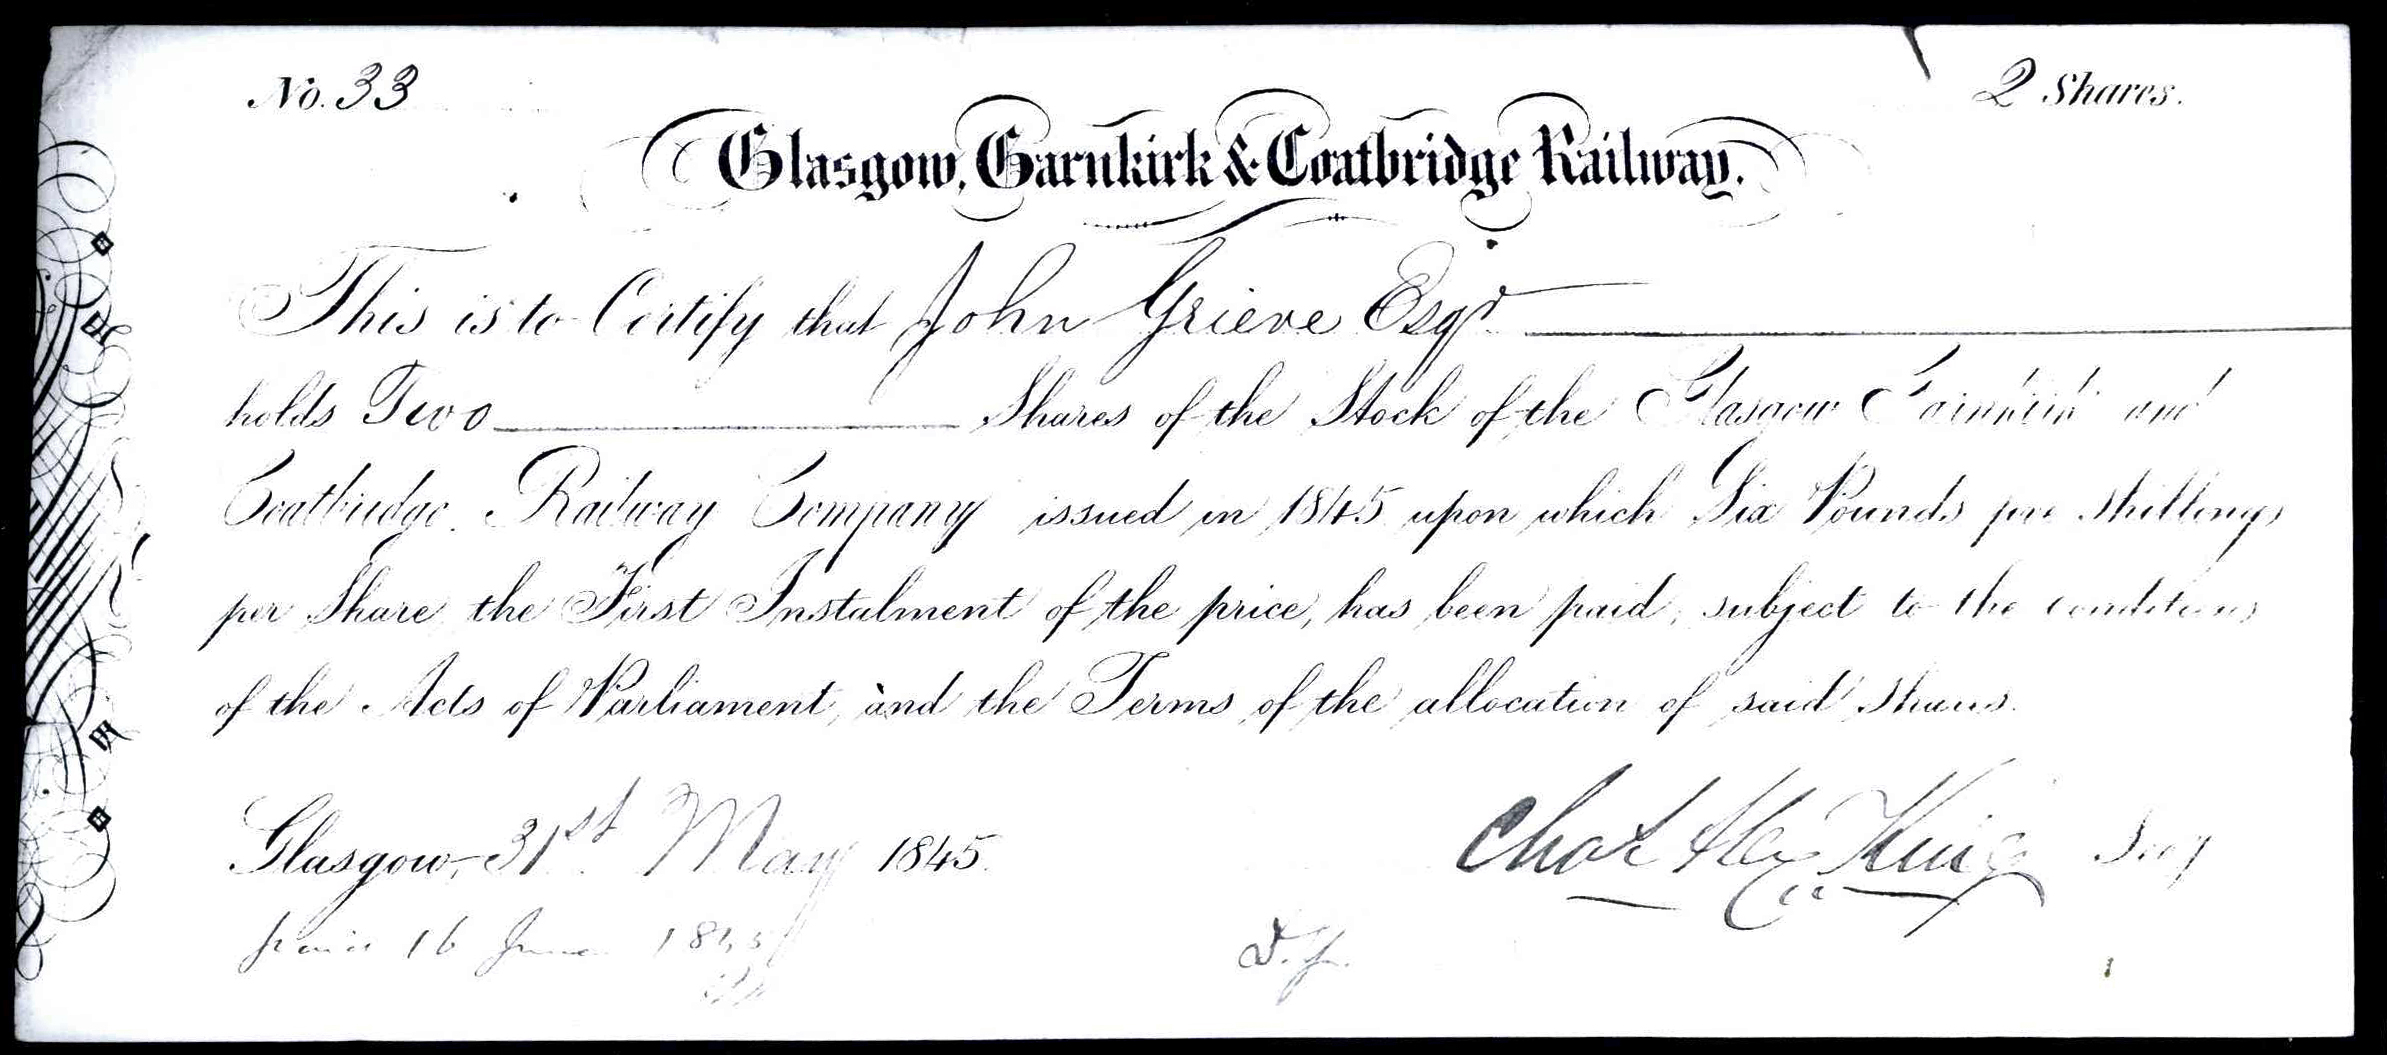 No. 33
2 Shares.
Glasgow, Garnkirk & Coatbridge Railway.
This is to Certify that John Grieve Esqr
holds Two Shares of the Stock of the Glasgow Garnkirk and
Coatbridge Railway Company issued in 1845 upon which Six Pounds five shillings
per Share the First Instalment of the price, has been paid, subject to the conditions
of the Acts of Parliament, and the Terms of the allocation of said Shares.
Glasgow, 31st May 1845.
King Secy
16 June 1845